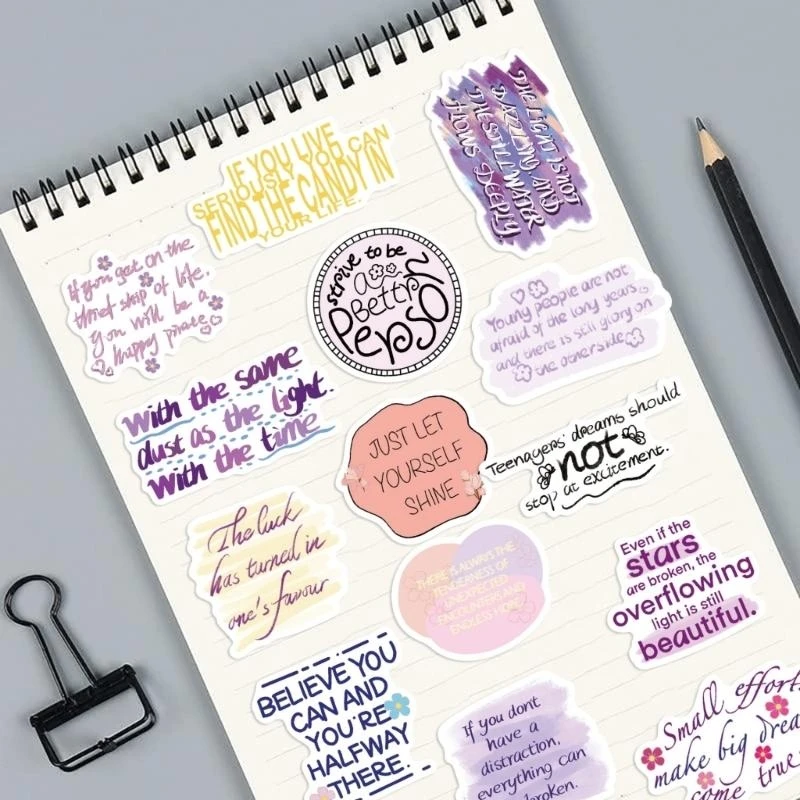 IF YOU LIVE
SERIOUSLY YOU CAN
FIND THE CANDY IN
YOUR LIFE.
THE LIGHT IS NOT
DAZZLING AND
THE STILL WATER
FLOWS DEEPLY.
If you get on the
thief ship of life.
you will be a
happy pirace
strive to be
a
Bettr
Pepson
Young people are not
afraid of the long years
and there is still glory on
the otherside
With the same
dust as the light.
With the time
JUST LET
YOURSELF
SHINE
Teenagers' dreams should
not
stop at excitement.
The luck
has turned in
one's favour
THERE IS ALWAYS THE
TENDERNESS OF
UNEXPECTED
ENCOUNTERS AND
ENDLESS HOPE
Even if the
stars
are broken, the
overflowing
light is still
beautiful.
BELIEVE YOU
CAN AND
YOU'RE
HALFWAY
THERE.
If you dont
have a
distraction,
everything can
be broken.
Small efforts
make big drea
come true